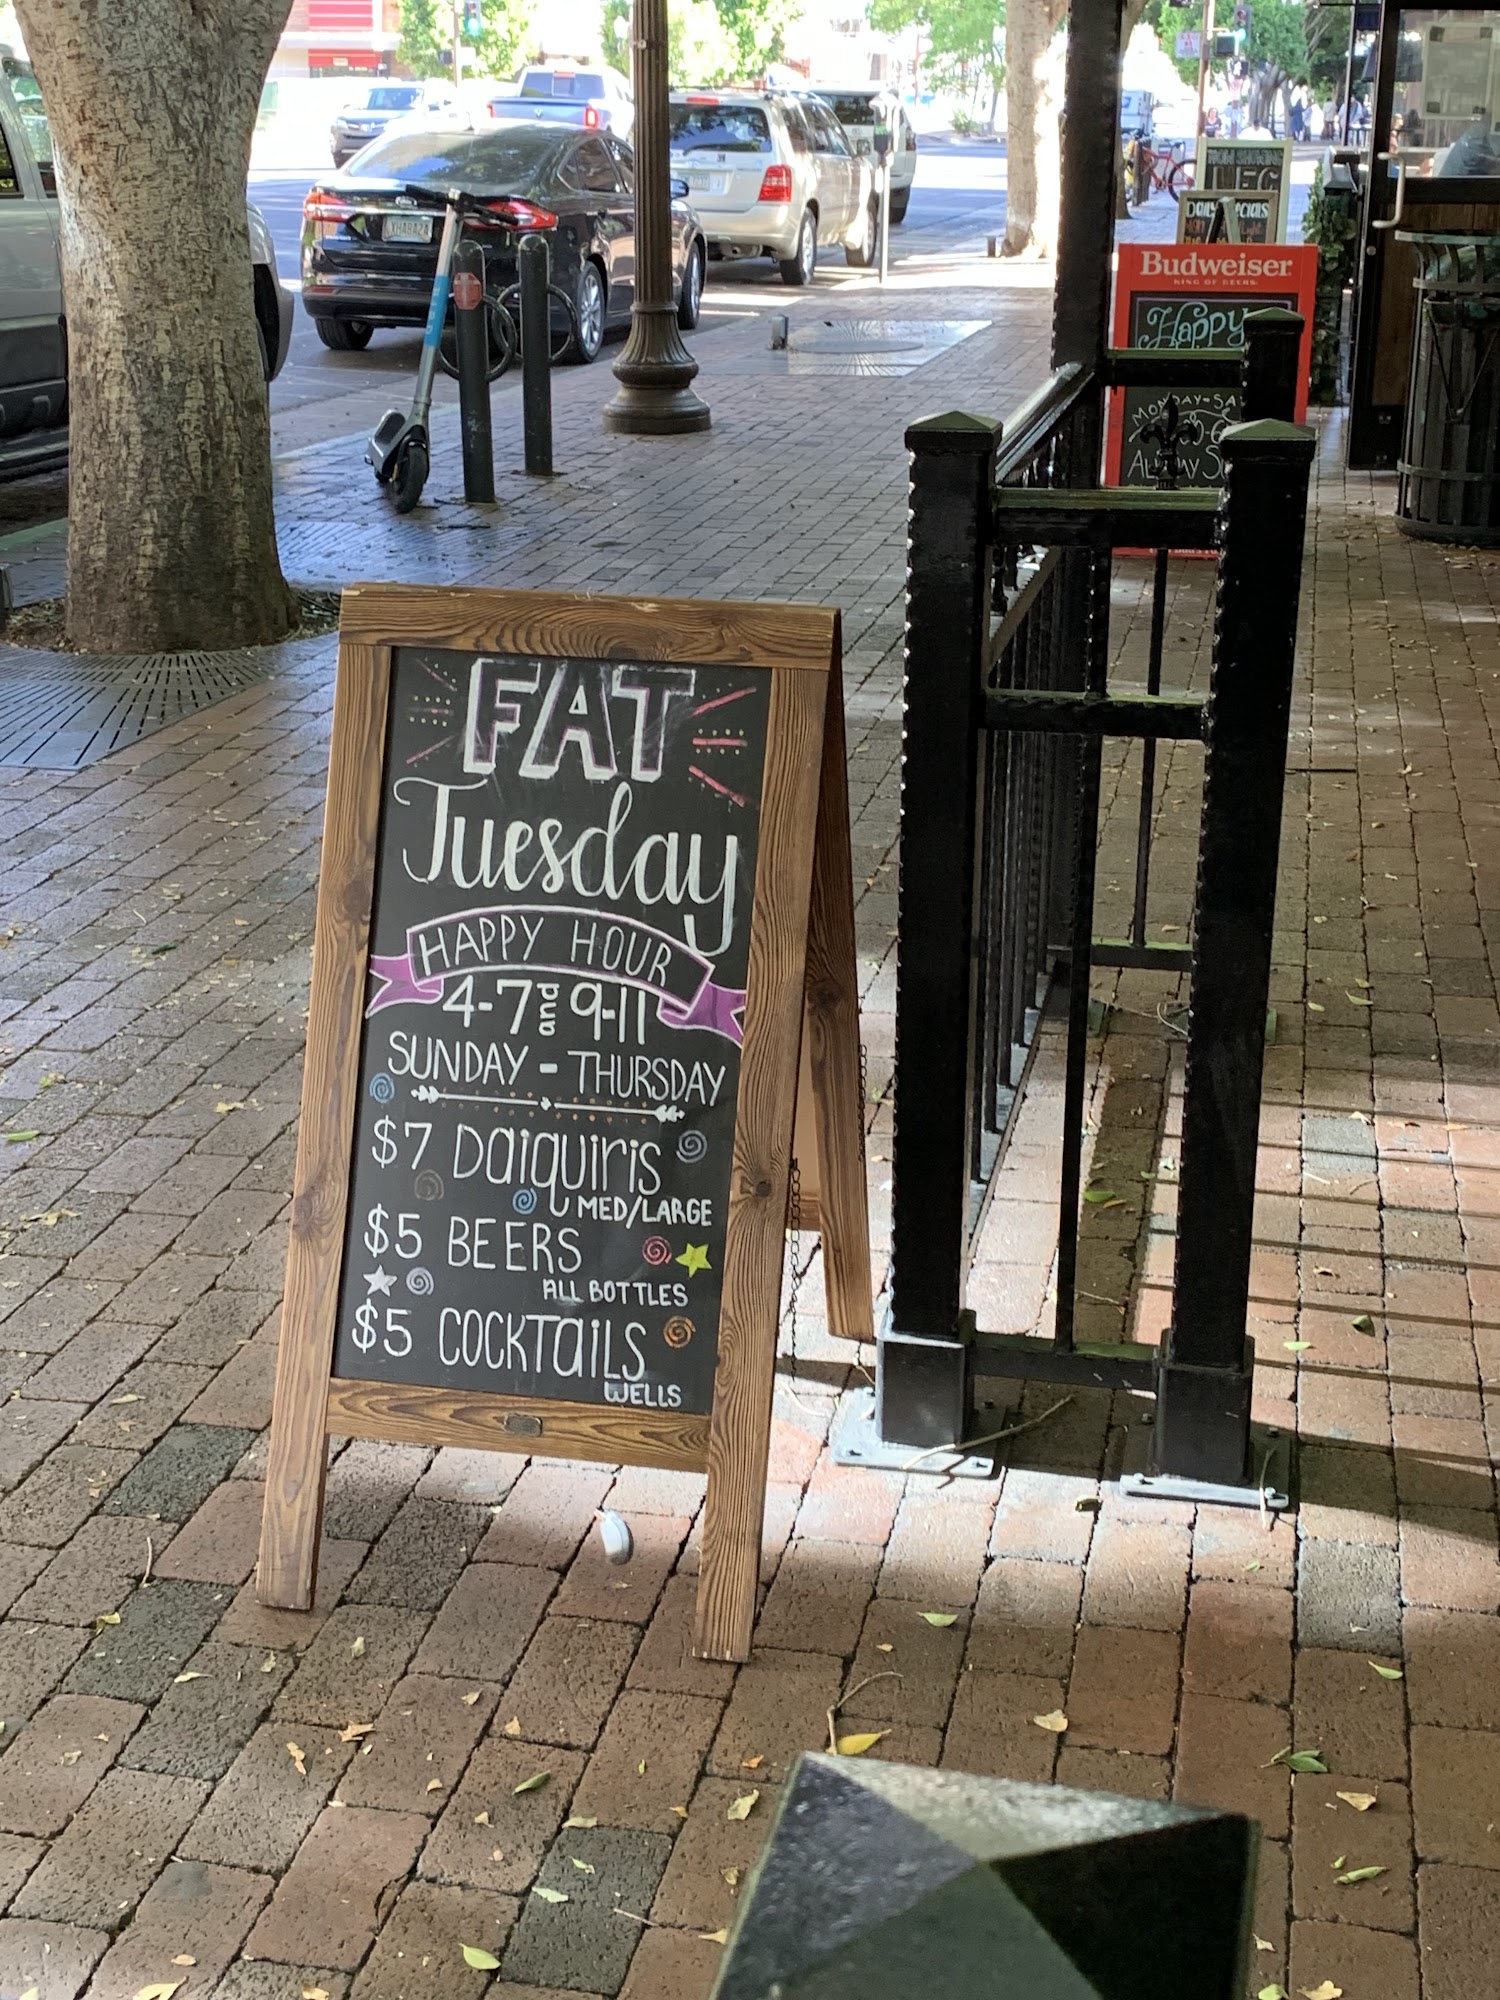 FAT
Tuesday
HAPPY HOUR
4-7 and 9-11
SUNDAY - THURSDAY
$7 Daiquiris
MED/LARGE
$5 BEERS
ALL BOTTLES
$5 COCKTAILS
WELLS
Budweiser
KING OF BEERS
Happy
MONDAY-SA
DAILY SPECIALS